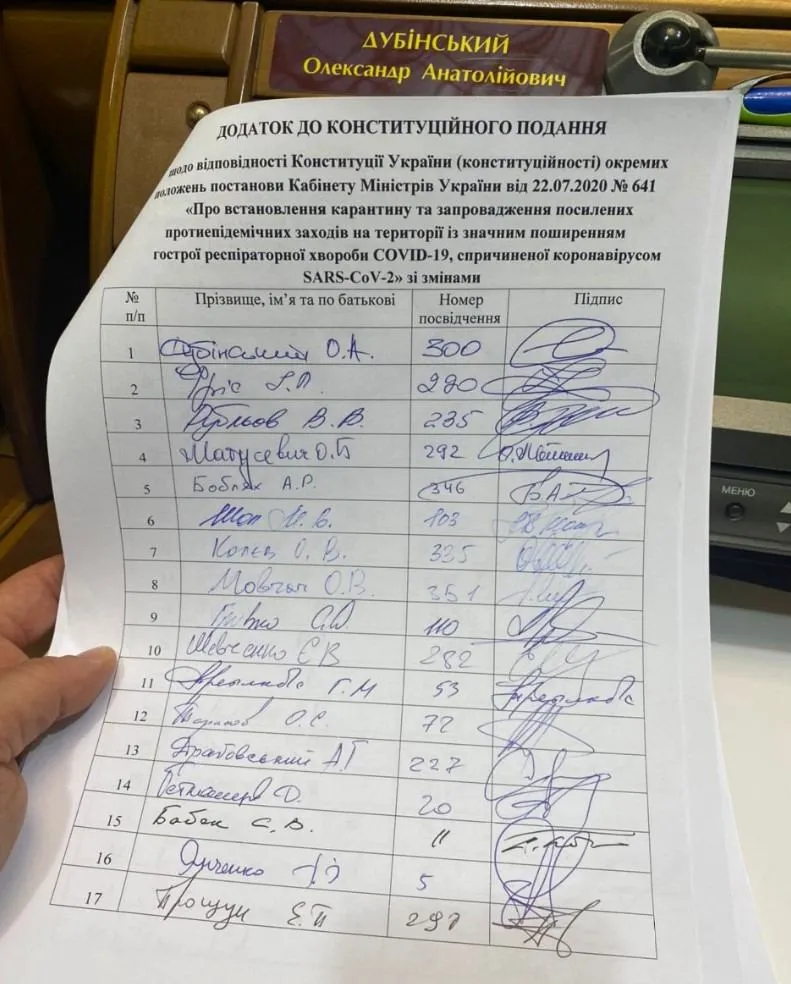 ДУБІНСЬКИЙ
Олександр Анатолійович
ДОДАТОК ДО КОНСТИТУЦІЙНОГО ПОДАННЯ
щодо відповідності Конституції України (конституційності) окремих
положень постанови Кабінету Міністрів України від 22.07.2020 № 641
«Про встановлення карантину та запровадження посилених
протиепідемічних заходів на території із значним поширенням
гострої респіраторної хвороби COVID-19, спричиненої коронавірусом
SARS-CoV-2» зі змінами
№ п/п Прізвище, ім’я та по батькові Номер посвідчення Підпис
1 Дубінський О.А. 300
2 Фріс І.П. 220
3 Рубльов В.В. 235
4 Матусевич О.Б 292
5 Бобляк А.Р. 346
6 103
7 Колєв О.В. 335
8 Мовчан О.В. 351
9 С. 110
10 Шевченко Є В 282
11 Г.М 53
12 О.С. 72
13 Грабовський 227
14 Гетманцев Д. 20
15 Бабак С.В. 11
16 5
17 Прощук Е.П 297
МЕНЮ